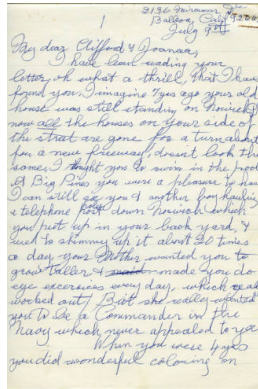 2136 Miramar
1 Balboa, Calif
July 9th
My dear Clifford & Joanna,
I have been reading your
letter, oh what a thrill, that I have
found you. I imagine yrs ago your old
house was still standing on Norwich
now all the houses on your side of
the street are gone for a turnabout
for a new freeway, doesn't look the
same. I taught you to swim in the pool
at Big Pines you were a pleasure to have
I can still see you & another boy hauling
a telephone post down Norwich which
you put up in your back yard, &
used to shimmy up it about 20 times
a day, your Mother wanted you to
grow taller & made you do
eye exercises every day, which
worked out! But she really wanted
you to be a Commander in the
Navy which never appealed to you
When you were 4 yrs
you did wonderful coloring on